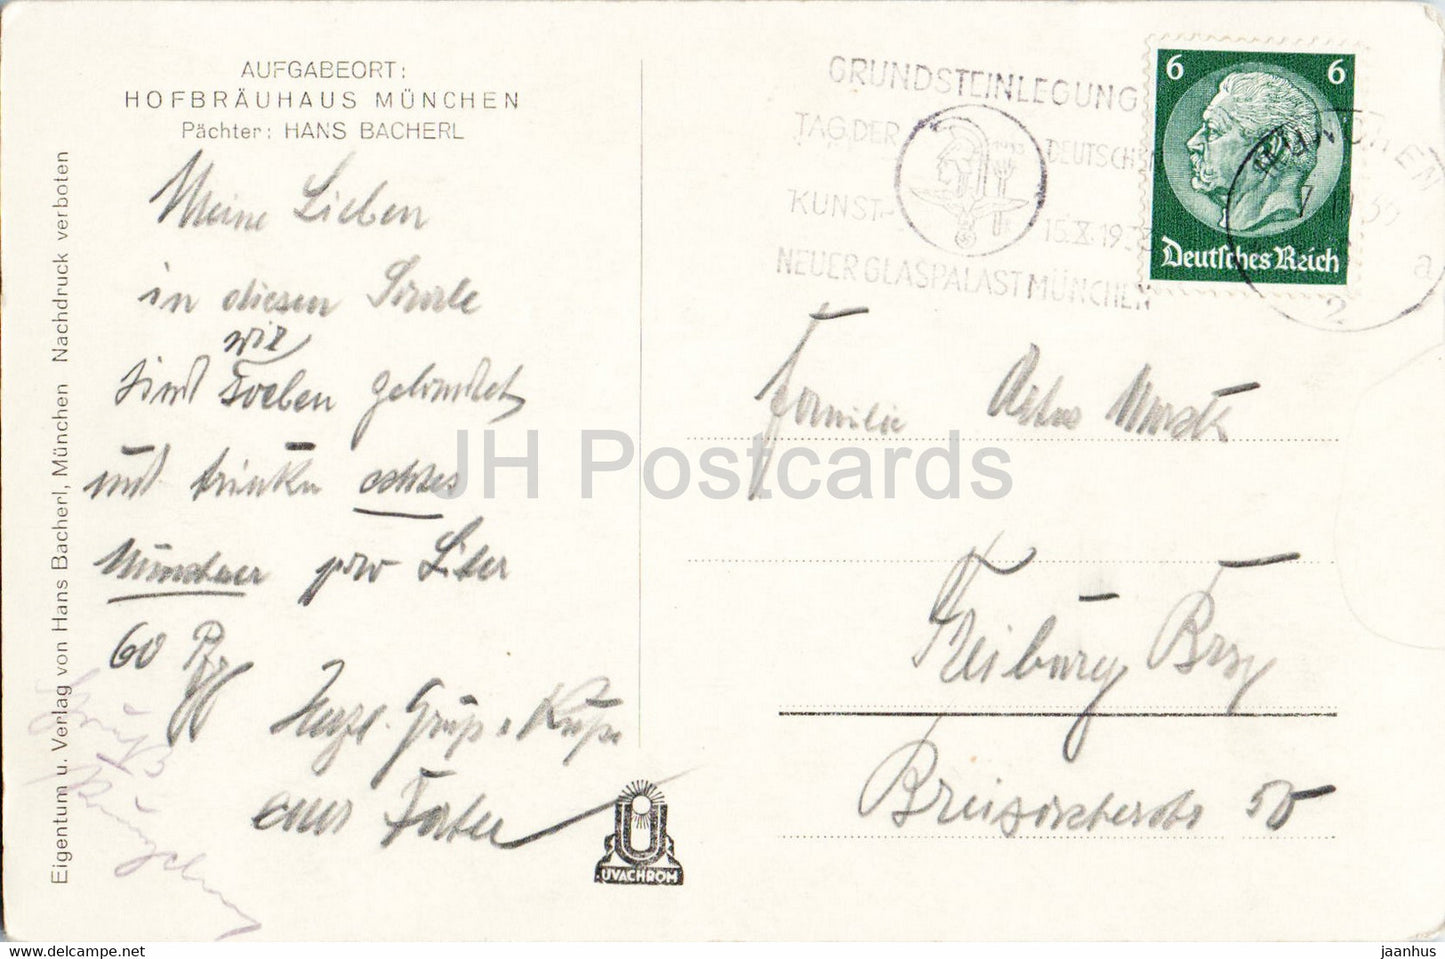 AUFGABEORT:
HOFBRÄUHAUS MÜNCHEN
Pächter: HANS BACHERL
Meine Lieben
in diesem Saale
wir
sind soeben gelandet
und trinken echtes
Münchner pro Liter
60 Pfg
Herzl. Gruß u. Kuß
euer Vater
Eigentum u. Verlag von Hans Bacherl, München Nachdruck verboten
UVACHROM
GRUNDSTEINLEGUNG
TAG DER DEUTSCHEN
KUNST- 15.X.1933
NEUER GLASPALAST MÜNCHEN
MÜNCHEN
2
a
6 6
Deutsches Reich
Familie
Freiburg Brsg
Breisacherstr 50
JH Postcards
hipstamp.me
jaanhus